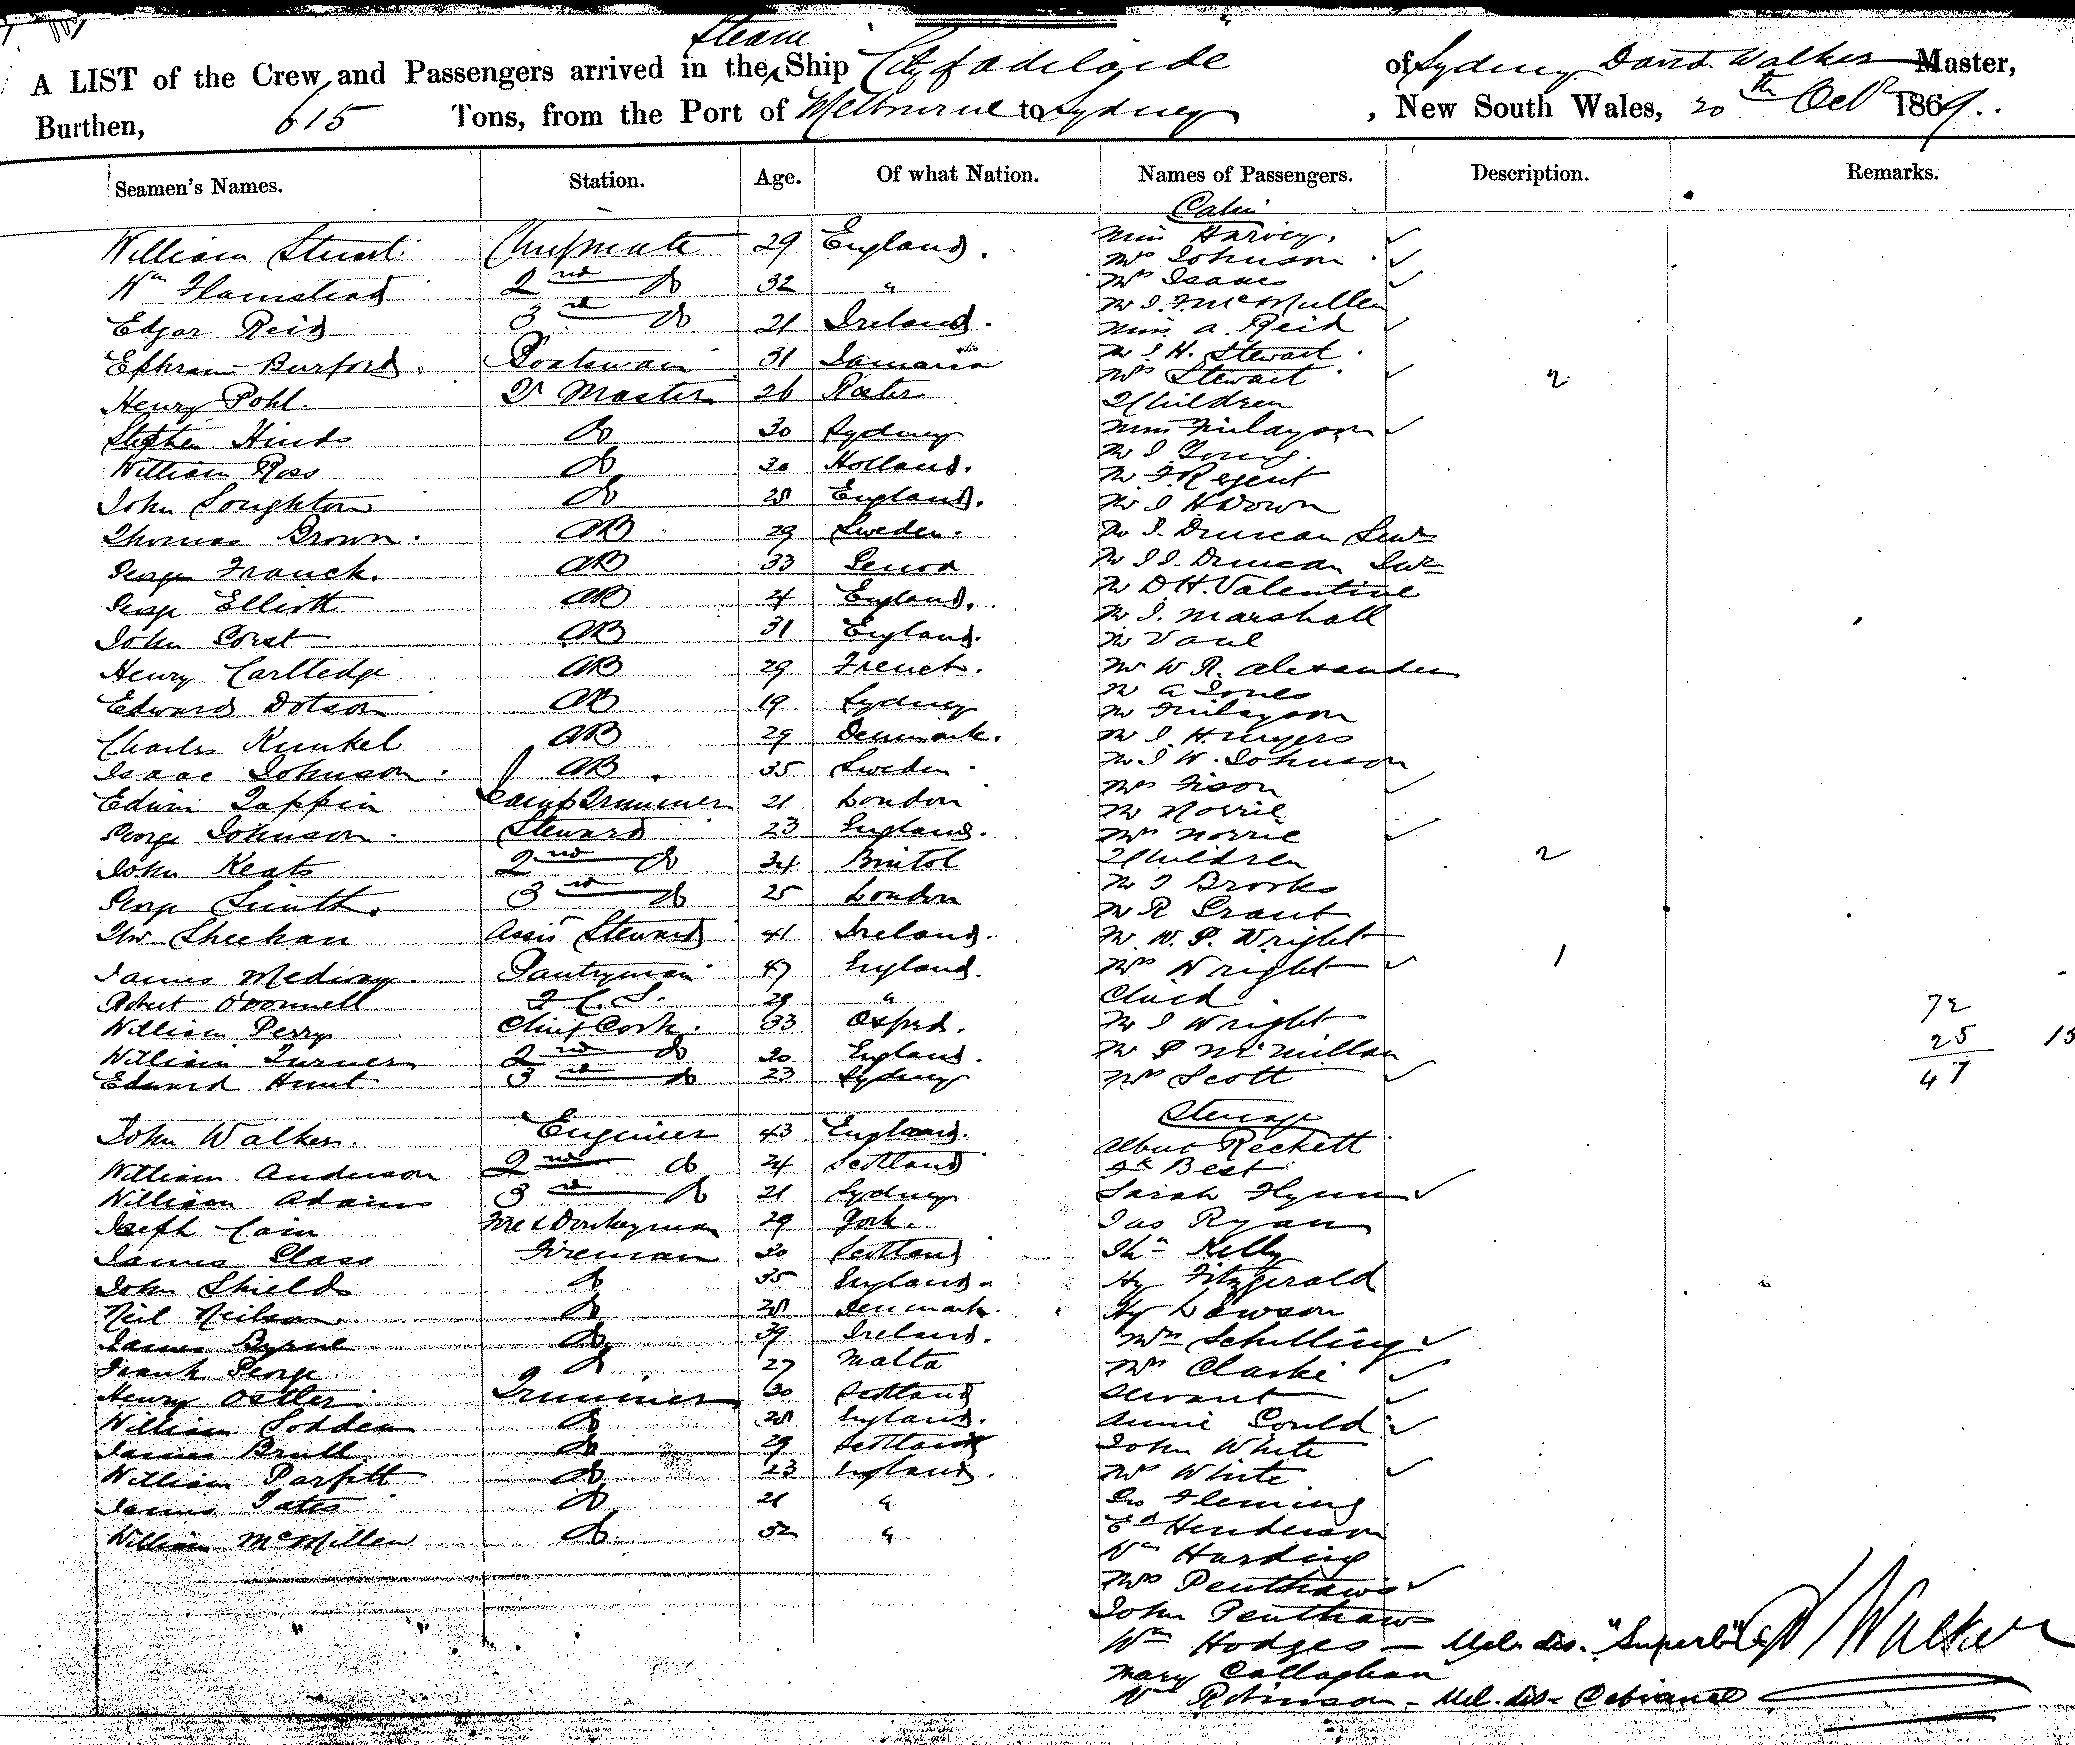 Steam
A LIST of the Crew and Passengers arrived in the Ship "City of Adelaide" of Sydney David Walker Master,
Burthen, 615 Tons, from the Port of Melbourne to Sydney, New South Wales, 20th Octr 1869.
Seamen's Names. Station. Age. Of what Nation. Names of Passengers. Description. Remarks.
Cabin
William Stuart Chief mate 29 England. Miss Harvey.
Mrs Johnson
Wm Flamstead 2nd do 32 " Mrs Isaacs
Mr J. F. McMullen
Edgar Reid 3rd do 21 Ireland. Miss A. Reid
Ephraim Burford Boatswain 31 Jamaica Mr J H. Stewart
Mrs Stewart 2
Henry Pohl. Qr Master 26 2 Children
Stephen Hinds do 30 Sydney Miss Finlayson
Mr J Young.
William Ross do 30 Holland. Mr F Regent
John Loughton do 28 England. Mr J H Down
Thomas Brown AB 29 Sweden. Mr J. Duncan Senr
George Franck. AB 33 Genoa Mr J J. Duncan Junr
Mr D H. Valentine
George Elliott AB 24 England. Mr J. Marshall
John Corst AB 31 England. Mr Vaul
Henry Carltedge AB 29 French. Mr W R. Alexander
Mr A Jones
Edward Dotson AB 19 Sydney Mr Finlayson
Charles Kunkel AB 29 Denmark. Mr J. H. Myers
Isaac Johnson AB 35 Sweden Mr J W. Johnson
Mrs Fison
Edwin Tappin Lamp Trimmer 21 London Mr Norrie
George Johnson Steward 23 England. Mrs Norrie
John Keats 2nd do 34 Bristol 2 Children 2
Mr J Brooks
George Smith 3rd do 25 London Mr R Grant
Thos Sheehan Assis Steward 41 Ireland. Mr W. P. Wright
James Medway Pantryman 47 England. Mrs Wright 1
Robert O'Donnell F. C. S. 29 " Child 72
William Perry Chief Cook 33 Oxford. Mr J Wright 25 13
William Turner 2nd do 20 England. Mr P McMillan 47
Edward Hunt 3rd do 23 Sydney Mrs Scott
Steerage
John Walker. Engineer 43 England. Albert Reckett
William Anderson 2nd do 24 Scotland Best
William Adams 3rd do 21 Sydney Sarah Flynn
Joseph Cain Fire & Donkeyman 29 York. Jas Ryan
James Class Fireman 30 Scotland Thos Kelly
John Shield do 35 England Hy Fitzgerald
Neil Neilson do 28 Denmark. Hy Lawson
James Byrne do 39 Ireland. Mrs Schilling
Frank George do 27 Malta Mrs Clarke
Henry Ostler Trimmer 30 Scotland Servant
William Sodden do 28 England. Annie Gould
James Brull do 29 Scotland John White
William Parfitt do 23 England. Mrs White
James Yates do 21 " Jno Fleming
Ed Henderson
William McMillen do 32 " Wm Harding
Mrs Penthaws
John Penthaws
Wm Hodges - Mel. dis. "Superb" D Walker
Mary Callaghan
Wm Robinson - Mel. dis -